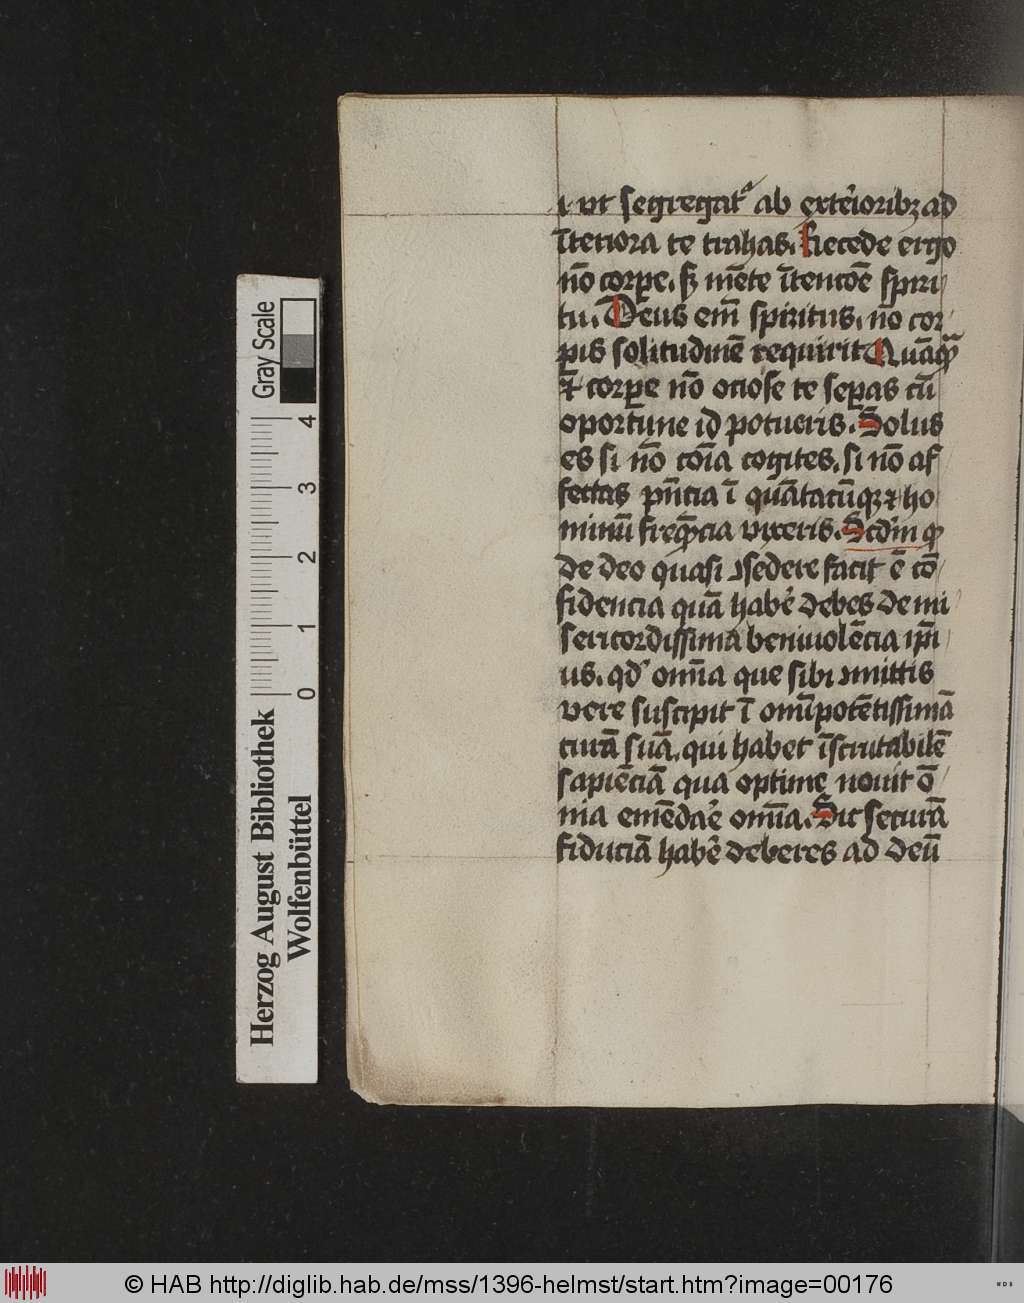 ⁊ ut segregatᵃ ab exteriorib⁊ ad
īteriora te trahas. Recede ergo
nō corpe. sꝫ mēte ītencōe spiri
tu. Deus em̄ spiritus. nō cor
pis solitudinē requirit Quāqᷓ
⁊ corpe nō ociose te sepas cū
oportune id potueris. Solus
es si nō cōia cogites. si nō af
fectas pn̄cia ī quātacūqꝫ ⁊ ho
minū freqn̄cia vixeris. Scdm̄ qͦ
de deo quasi ɔsedere facit ē cō
fidencia quā habe᷒ debes de mi
sericordissima beniuolēcia ip̄i
us. qd᷒ om̄ia que sibi ɔmittis
vere suscipit ī omīpotētissimā
curā suā. qui habet īscrutabilē
sapiēciā qua optime nouit o̅
nia emēda᷒e om̄ia. Sic securā
fiduciā habe᷒ deberes ad deū
Herzog August Bibliothek
Wolfenbüttel
0 1 2 3 4
Gray Scale
© HAB http://diglib.hab.de/mss/1396-helmst/start.htm?image=00176